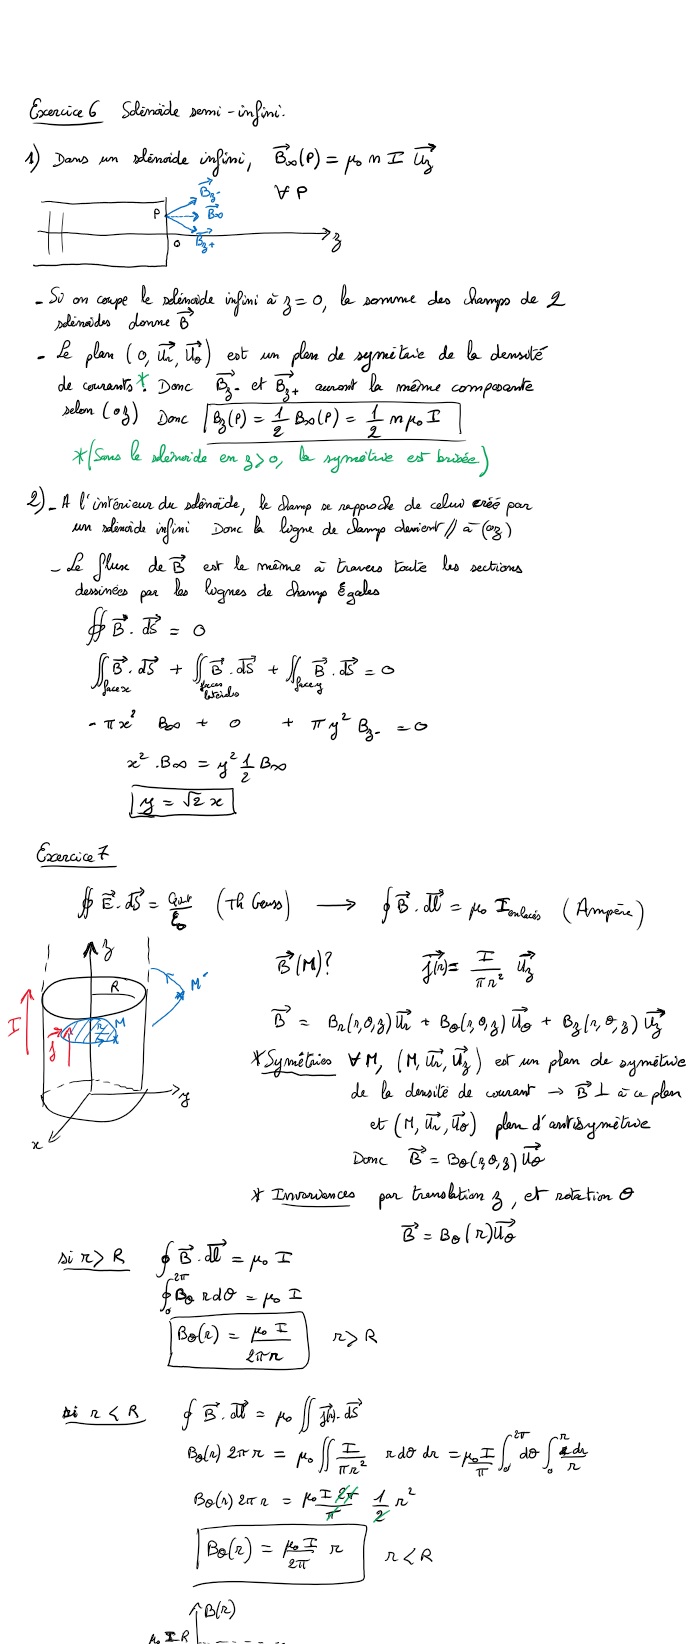 Exercice 6 Solénoïde semi-infini.
1) Dans un solénoïde infini, B⃗∞(P) = μ₀ n I u⃗z
∀ P
B⃗z-
P B⃗∞
O B⃗z+ z
- Si on coupe le solénoïde infini à z = 0, la somme des champs de 2
solénoïdes donne B⃗
- Le plan (O, u⃗r, u⃗θ) est un plan de symétrie de la densité
de courants*. Donc B⃗z- et B⃗z+ auront la même composante
selon (oz) Donc Bz(P) = 1/2 B∞(P) = 1/2 n μ₀ I
*(Sans le solénoïde en z>0, la symétrie est brisée)
2) - A l'intérieur du solénoïde, le champ se rapproche de celui créé par
un solénoïde infini Donc la ligne de champs devient // à (oz)
- Le flux de B⃗ est le même à travers toute les sections
dessinées par les lignes de champ Egales
∯ B⃗. dS⃗ = 0
∬face x B⃗. dS⃗ + ∬faces latérales B⃗. dS⃗ + ∬face y B⃗. dS⃗ = 0
- πx² B∞ + 0 + πy² Bz- = 0
x² . B∞ = y² 1/2 B∞
y = √2 x
Exercice 7
∯ E⃗. dS⃗ = Qint/ε₀ (Th Gauss) → ∮ B⃗. dl⃗ = μ₀ Ienlacés (Ampère)
z
R
M'
I
j⃗
r M
y
x
B⃗(M)? j⃗(r) = I/πr² u⃗z
B⃗ = Br(r,θ,z)u⃗r + Bθ(r,θ,z)u⃗θ + Bz(r,θ,z)u⃗z
* Symétries ∀M, (M, u⃗r, u⃗z) est un plan de symétrie
de la densité de courant → B⃗ ⊥ à ce plan
et (M, u⃗r, u⃗θ) plan d'antisymétrie
Donc B⃗ = Bθ(r,θ,z)u⃗θ
* Invariances par translation z, et rotation θ
B⃗ = Bθ(r)u⃗θ
si r > R ∮ B⃗. dl⃗ = μ₀ I
∮₀^2π Bθ r dθ = μ₀ I
Bθ(r) = μ₀ I/2πr r > R
si r < R ∮ B⃗. dl⃗ = μ₀ ∬ j⃗(r). dS⃗
Bθ(r) 2πr = μ₀ ∬ I/πr² r dθ dr = μ₀ I/π ∫₀^2π dθ ∫₀^r dr/r
Bθ(r) 2πr = μ₀ I 2π/π 1/2 r²
Bθ(r) = μ₀ I/2π r r < R
B(r)
μ₀ I R